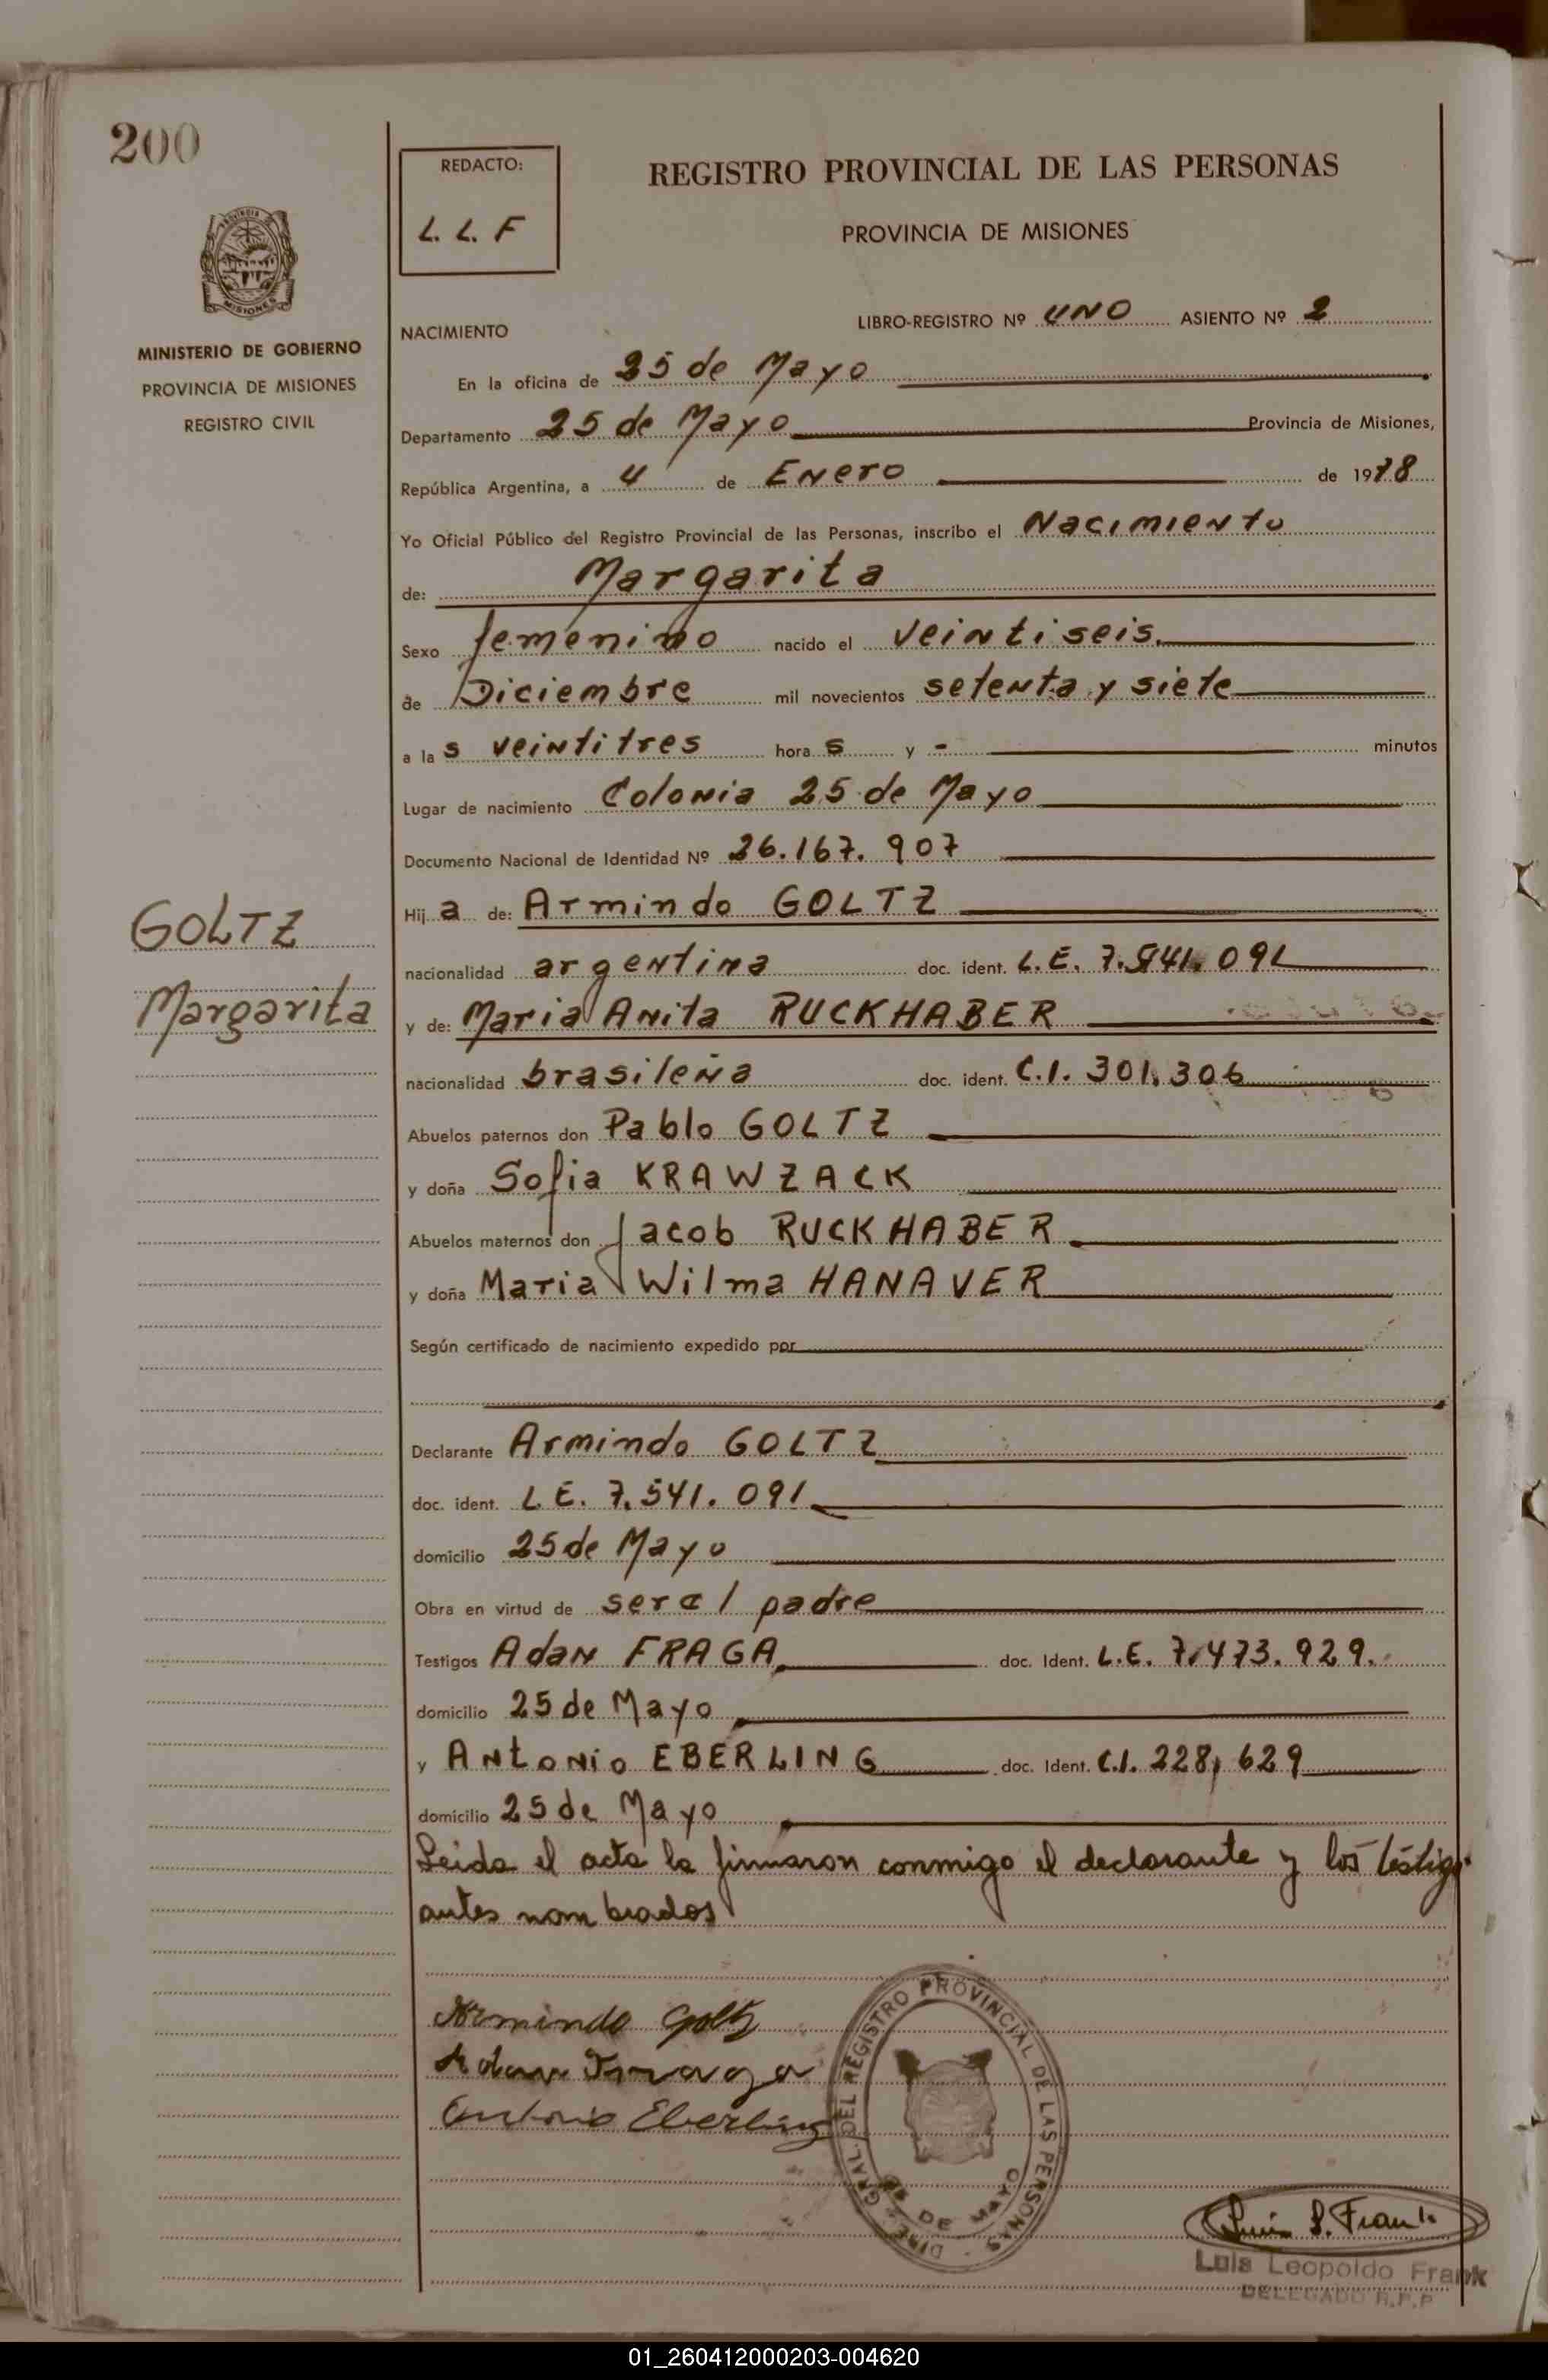 200
REDACTO:
L. L. F
REGISTRO PROVINCIAL DE LAS PERSONAS
PROVINCIA DE MISIONES
MISIONES
MINISTERIO DE GOBIERNO
PROVINCIA DE MISIONES
REGISTRO CIVIL
NACIMIENTO
LIBRO-REGISTRO Nº UNO ASIENTO Nº 2
En la oficina de 25 de Mayo
Departamento 25 de Mayo Provincia de Misiones,
República Argentina, a 4 de Enero de 1978
Yo Oficial Público del Registro Provincial de las Personas, inscribo el Nacimiento
de: Margarita
Sexo femenino nacido el veintiseis.
de Diciembre mil novecientos setenta y siete
a las veintitres horas y - minutos
Lugar de nacimiento Colonia 25 de Mayo
Documento Nacional de Identidad Nº 26.167.907
Hija de: Armindo GOLTZ
GOLTZ
nacionalidad argentina doc. ident. L.E. 7.541.091
Margarita
y de: Maria Anita RUCKHABER
nacionalidad brasileña doc. ident. C.I. 301.306
Abuelos paternos don Pablo GOLTZ
y doña Sofia KRAWZACK
Abuelos maternos don Jacob RUCKHABER
y doña Maria Wilma HANAVER
Según certificado de nacimiento expedido por
Declarante Armindo GOLTZ
doc. ident. L.E. 7.541.091
domicilio 25 de Mayo
Obra en virtud de ser el padre
Testigos Adan FRAGA doc. Ident. L.E. 7.473.929.
domicilio 25 de Mayo
y Antonio EBERLING doc. Ident. C.I. 228,629
domicilio 25 de Mayo
Leida el acta la firmaron conmigo el declarante y los testigos
antes nombrados
Armindo Goltz
Adan Fraga
Antonio Eberling
DIREC. GRAL. DEL REGISTRO PROVINCIAL DE LAS PERSONAS
25 DE MAYO
Luis L. Frank
Luis Leopoldo Frank
DELEGADO R.P.P
01_260412000203-004620